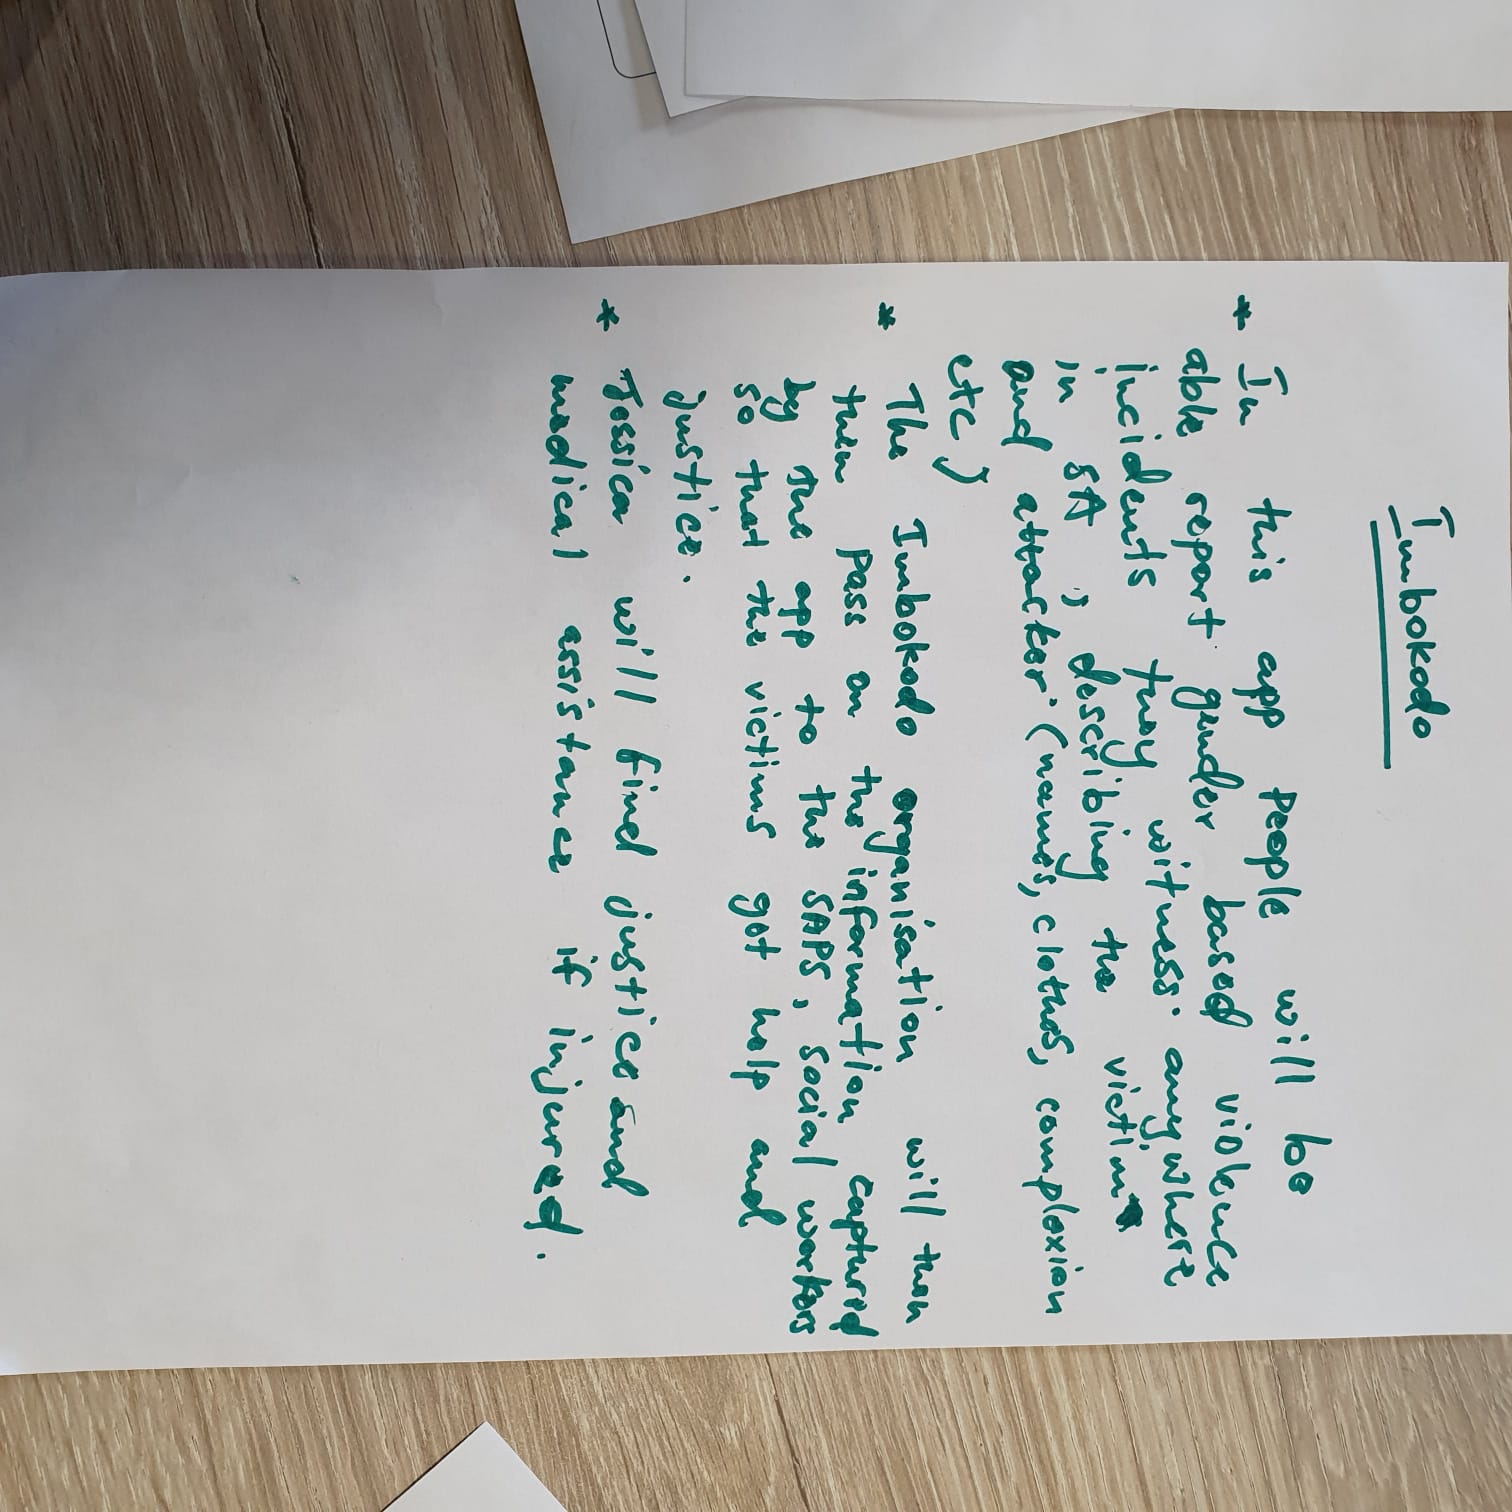 Imbokodo
* In this app people will be
able report gender based violence
incidents they witness anywhere
in SA, describing the victim
and attacker (names, clothes, complexion
etc)
* The Imbokodo organisation will then
then pass on the information captured
by the app to the SAPS, social workers
so that the victims get help and
justice.
* Jessica will find justice and
medical assistance if injured.